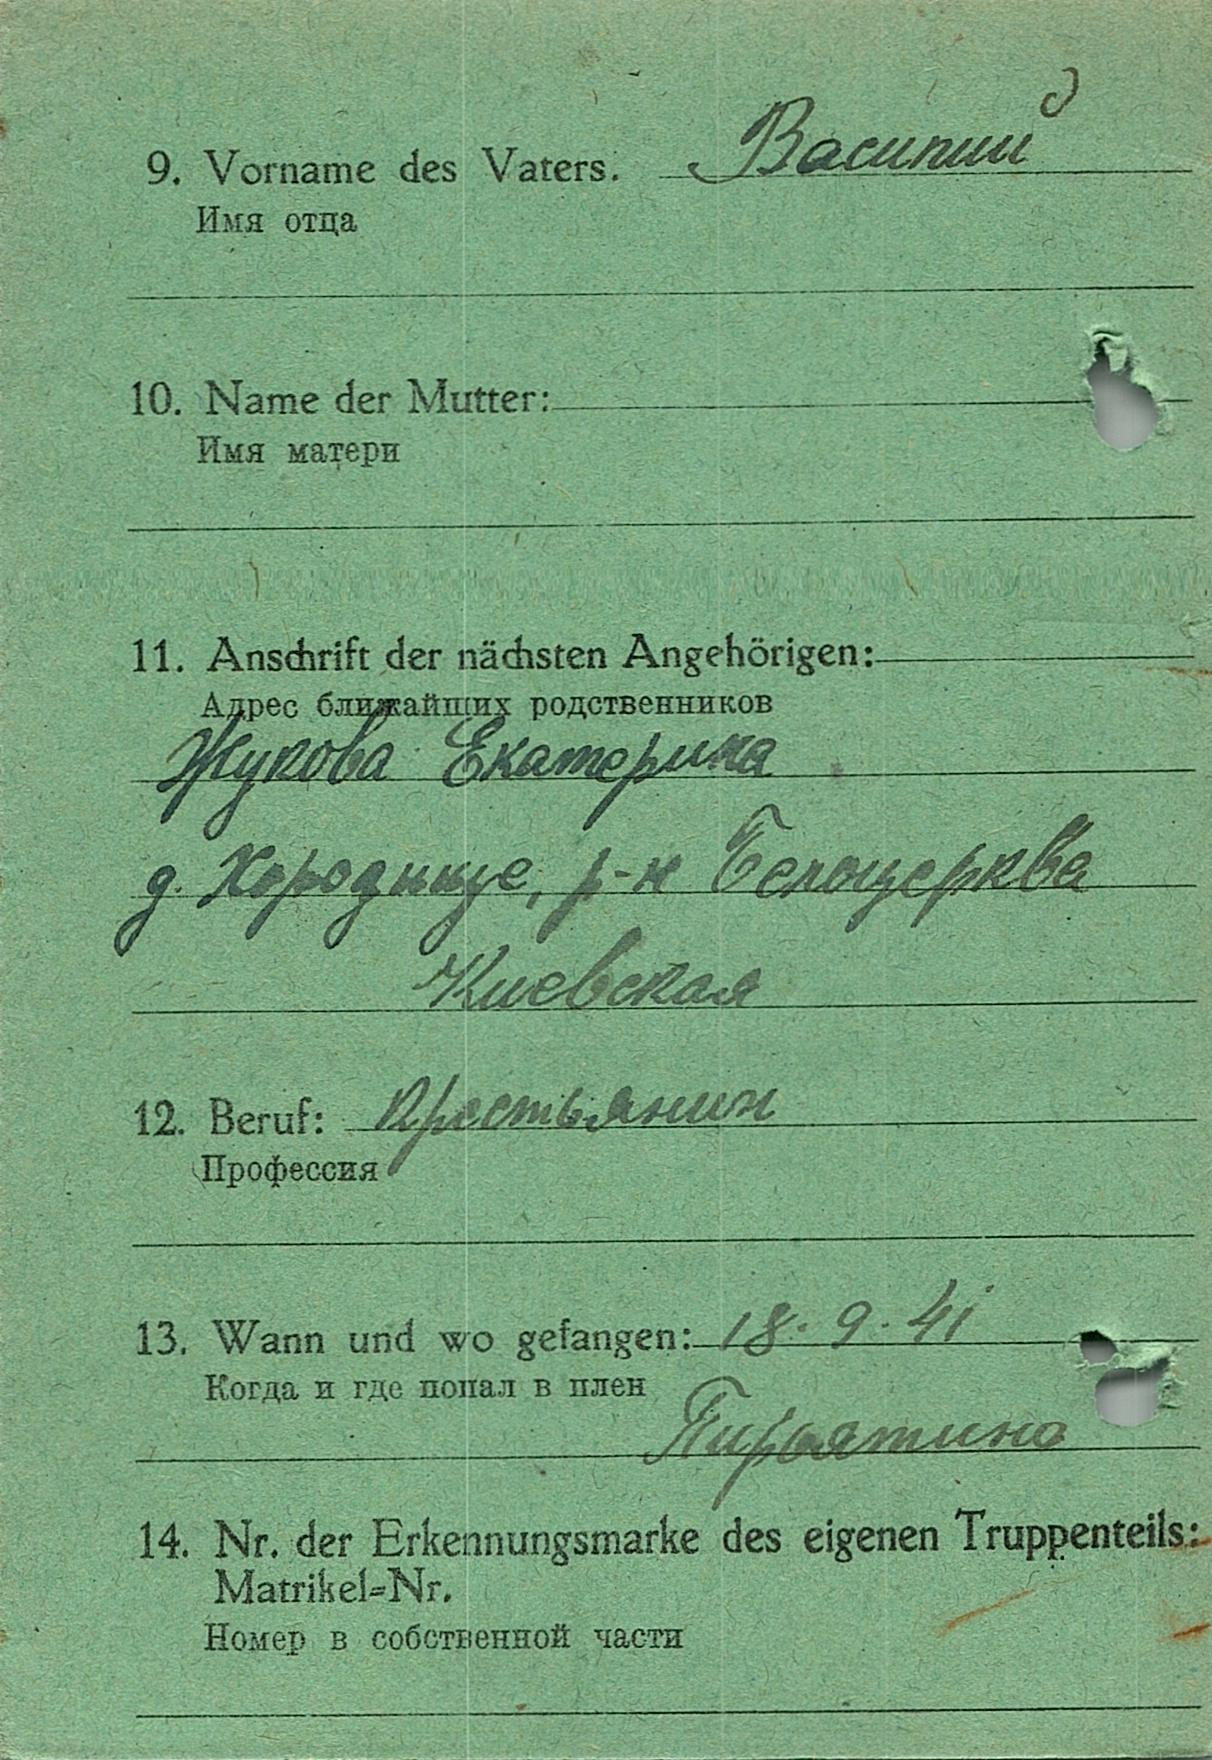 9. Vorname des Vaters. Василий
Имя отца
10. Name der Mutter:
Имя матери
11. Anschrift der nächsten Angehörigen:
Адрес ближайших родственников
Жукова Екатерина
д. Хородище, р-н Белоцерква
Киевская
12. Beruf: крестьянин
Профессия
13. Wann und wo gefangen: 18. 9. 41
Когда и где попал в плен
Пирьятино
14. Nr. der Erkennungsmarke des eigenen Truppenteils:
Matrikel=Nr.
Номер в собственной части